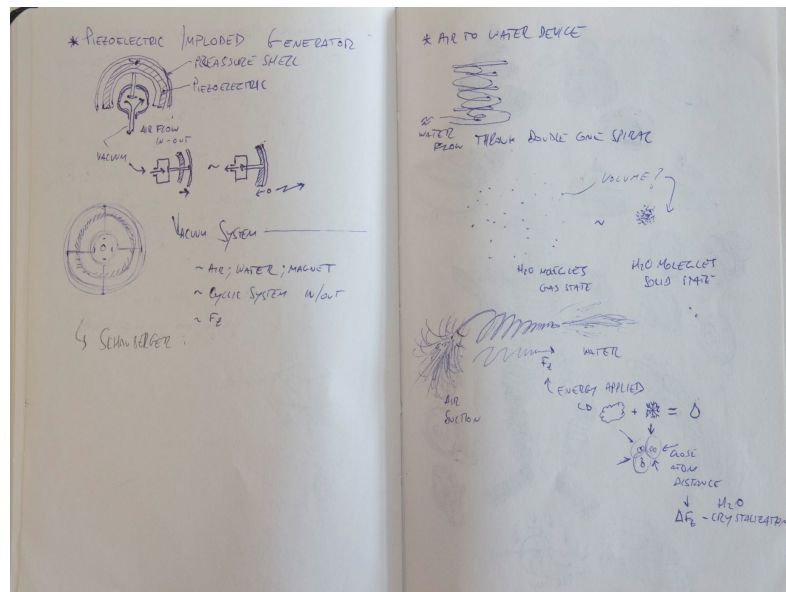 * PIEZOELECTRIC IMPLODED GENERATOR
PREASSURE SHELL
PIEZOELECTRIC
AIR FLOW
IN-OUT
VACUUM
VACUUM SYSTEM
~ AIR; WATER; MAGNET
~ CYCLIC SYSTEM IN/OUT
~ Fz
↳ SCHAUBERGER:
* AIR TO WATER DEVICE
WATER
FLOW THROUGH DOUBLE CONE SPIRAL
VOLUME?
~
H2O MOLECLES
GAS STATE
H2O MOLECLES
SOLID STATE
Fz
WATER
AIR
SUCTION
↑ ENERGY APPLIED
+ =
CLOSE
ATOM
DISTANCE
↓ H2O
ΔFz - CRYSTALIZATION